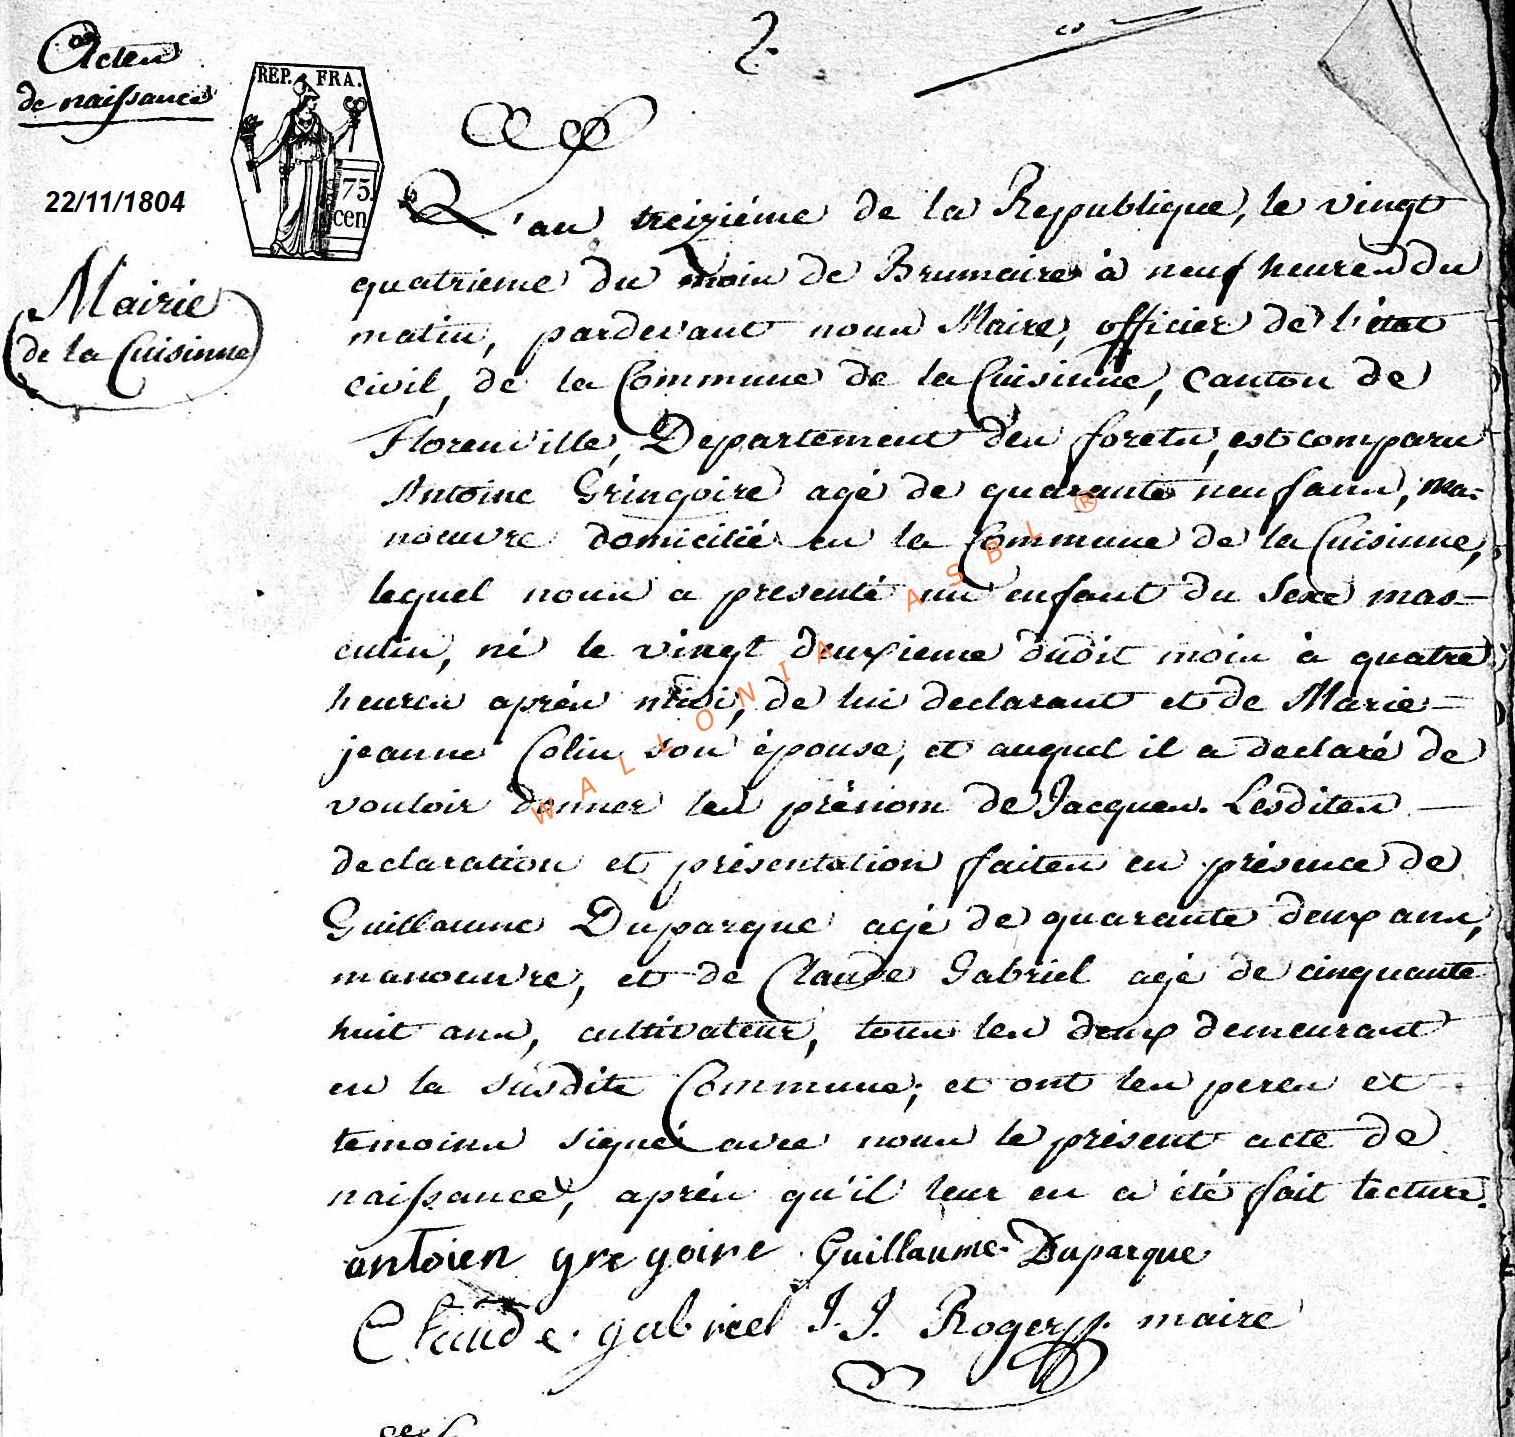 2.
Actes
de naissances
REP. FRA.
75
cen
22/11/1804
Mairie
de la Cuisinne
L'an treiziéme de la Republique, le vingt
quatrieme du mois de Brumaire à neuf heures du
matin, pardevant nous Maire, officier de l'état
civil, de la Commune de la Cuisinne, Canton de
Florenville, Departement des forets, est comparu
Antoine Gringoire agé de quarante neuf ans, ma=
noeuvre domicilié en la Commune de la Cuisinne,
lequel nous a presenté un enfant du Sexe mas=
culin, né le vingt deuxieme dudit mois à quatre
heures aprés midi, de lui declarant et de Marie=
jeanne Colin son épouse, et auquel il a declaré de
vouloir donner les prénom de Jacques. Lesdites
declaration et présentation faites en présence de
Guillaume Duparque agé de quarante deux ans,
manoeuvre, et de Claude Gabriel agé de cinquante
huit ans, cultivateur, tous les deux demeurant
en la susdite Commune; et ont les peres et
temoins signé avec nous le présent acte de
naissance, aprés qu'il leur en a été fait lecture.
antoien gregoire Guillaume Duparque
Claude gabriel J. J. Roger maire
WALLONIA ASBL ®